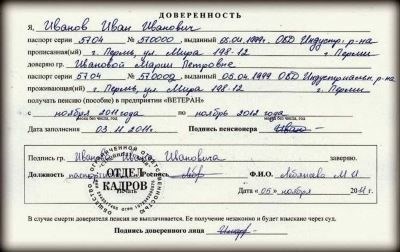 ДОВЕРЕННОСТЬ
Я, Иванов Иван Иванович
паспорт серии 5704 № 570000, выданный 05.04.1999 ОВД Индустр. р-на
прописанный(ая) г. Пермь, ул. Мира 198-12 г. Перми
доверяю гр. Ивановой Марии Петровне
паспорт серии 5704 № 570002, выданный 05.04.1999 ОВД Индустриальн. р-на
проживающий(ая) г. Пермь, ул. Мира 198-12 г. Перми
получать пенсию (пособие) в предприятия «ВЕТЕРАН»
с ноября 2011 года по ноябрь 2012 года
Дата заполнения 03.11.2011г. Подпись пенсионера
Подпись гр. Иванова Ивана Ивановича заверяю.
Должность Подпись Ф.И.О. М И
ОТДЕЛ
КАДРОВ
Дата «05» ноября 2011 г.
В случае смерти доверителя пенсия не выплачивается. Ее получение незаконно и будет взыскано через суд.
Подпись доверенного лица